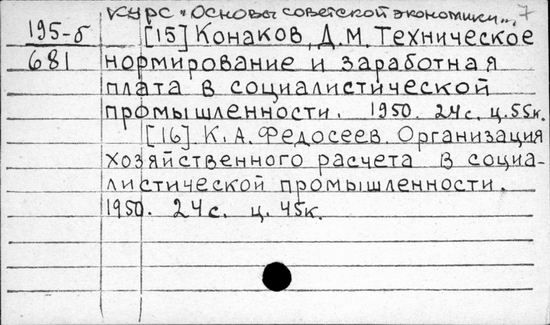 Курс "Основы советской экономики"... 7
195-б [15] Конаков, Д.М. Техническое
681 нормирование и заработная
плата в социалистической
промышленности. 1950. 24с. ц.55к.
[16]. К.А. Федосеев. Организация
хозяйственного расчета в социа-
листической промышленности.
1950. 24с. ц. 45к.